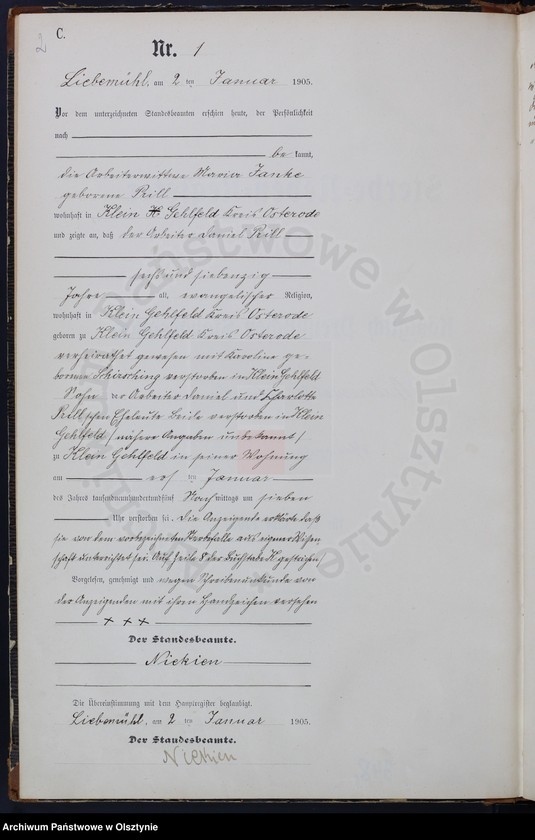 2
C.
Nr. 1
Liebemühl, am 2 ten Januar 1905.
Vor dem unterzeichneten Standesbeamten erschien heute, der Persönlichkeit
nach
be kannt,
die Arbeiterwittwe Maria Janke
geborene Rill
wohnhaft in Klein H Gehlfeld Kreis Osterode
und zeigte an, daß der Arbeiter Daniel Rill
sechs und siebenzig
Jahre alt, evangelischer Religion,
wohnhaft in Klein Gehlfeld Kreis Osterode
geboren zu Klein Gehlfeld Kreis Osterode
verheirathet gewesen mit Karoline ge-
borene verstorben in Klein Gehlfeld
Sohn der Arbeiter Daniel und Charlotte
Rill'schen Eheleute Beide verstorben in Klein
Gehlfeld / nähere Angaben unbekannt /
zu Klein Gehlfeld in seiner Wohnung
am ersten Januar
des Jahres tausendneunhundertundfünf Nachmittags um sieben
Uhr verstorben sei. Die Anzeigende erklärte daß
sie von dem vorbezeichneten Sterbefalle aus eigener Wissen
schaft unterrichtet sei. Auf Zeile 8 der Buchstabe H gestrichen /
Vorgelesen, genehmigt und wegen Schreibensunkunde von
der Anzeigenden mit ihrem Handzeichen versehen
+ + +
Der Standesbeamte.
Nickien
Die Übereinstimmung mit dem Hauptregister beglaubigt.
Liebemühl, am 2 ten Januar 1905.
Der Standesbeamte.
Nickien
Archiwum Państwowe w Olsztynie